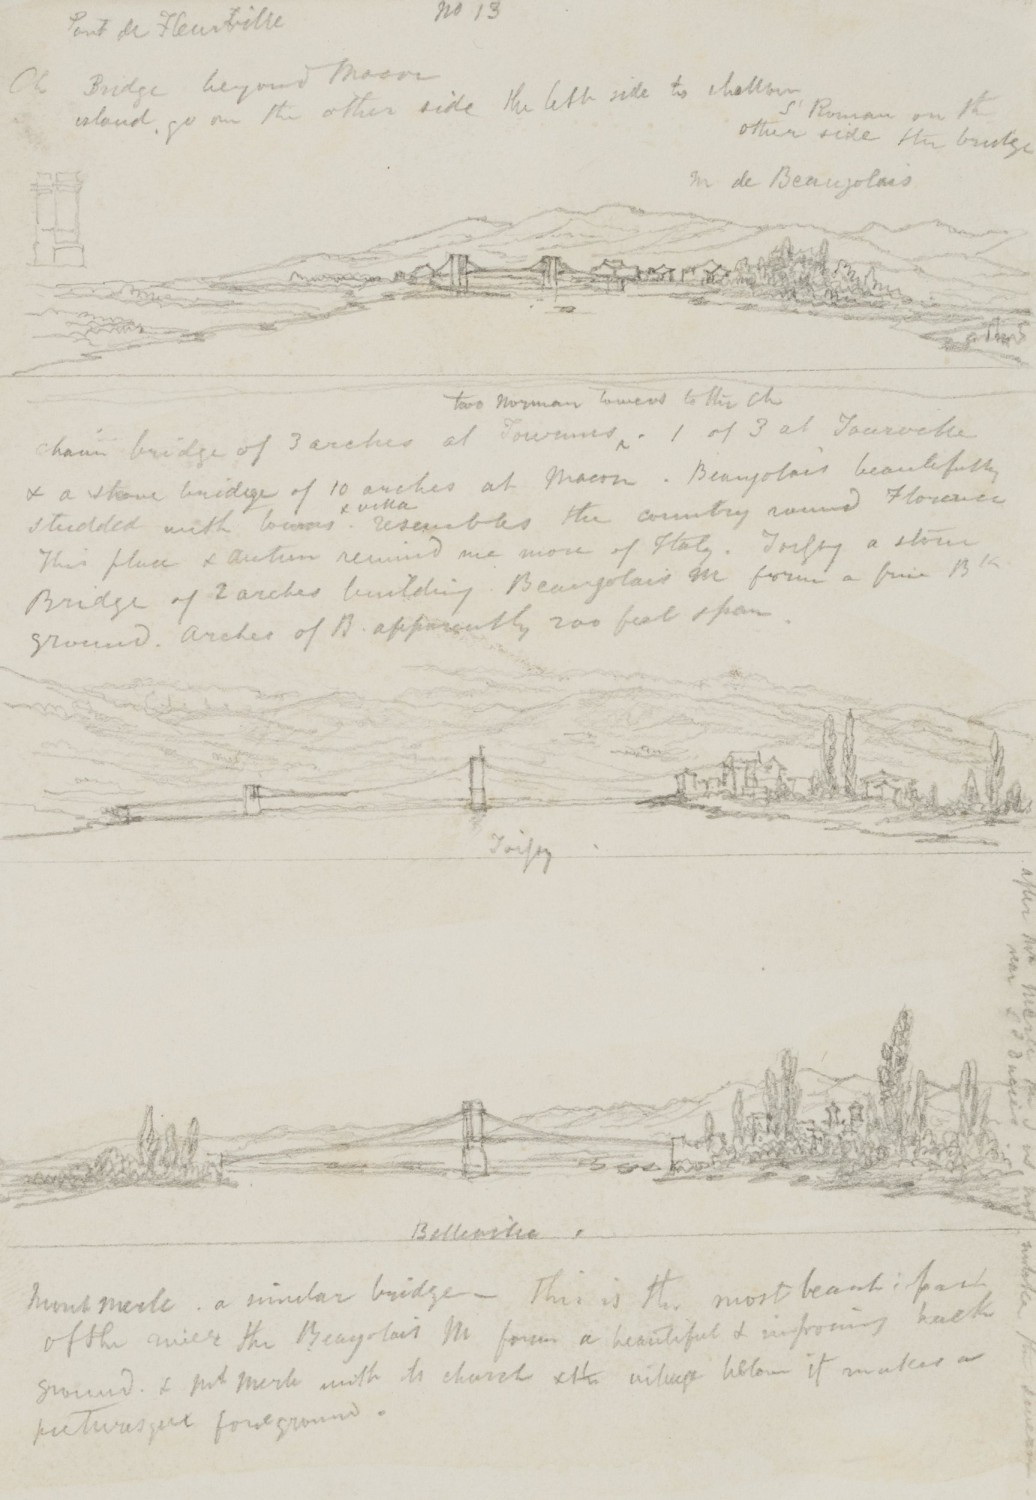 Pont de Fleurville
No 13
Ch Bridge beyond Macon
island, go on the other side the left side to shallow
St Roman on the
other side the bridge
M de Beaujolais
two Norman towers to the Ch
chain bridge of 3 arches at Tournus. 1 of 3 at
& a stone bridge of 10 arches at Macon. Beaujolais beautifully
& villa
studded with towns. resembles the country round Florence
This place & Autun remind me more of Italy. Toissy a stone
Bridge of 2 arches building. Beaujolais M form a fine Bk
ground. Arches of B. apparently 200 feet span.
Toissy
after Mt Merle the
near
under the
Belleville.
Mont merle. a similar bridge— This is the most beauti: part
of the river the Beaujolais M form a beautiful & imposing back
ground. & Mt Merle with its church & the village below it makes a
picturesque foreground.